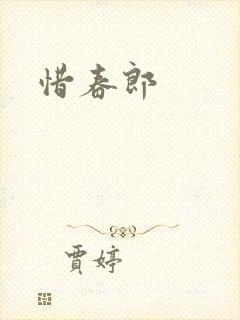 惜春郎
賈婷